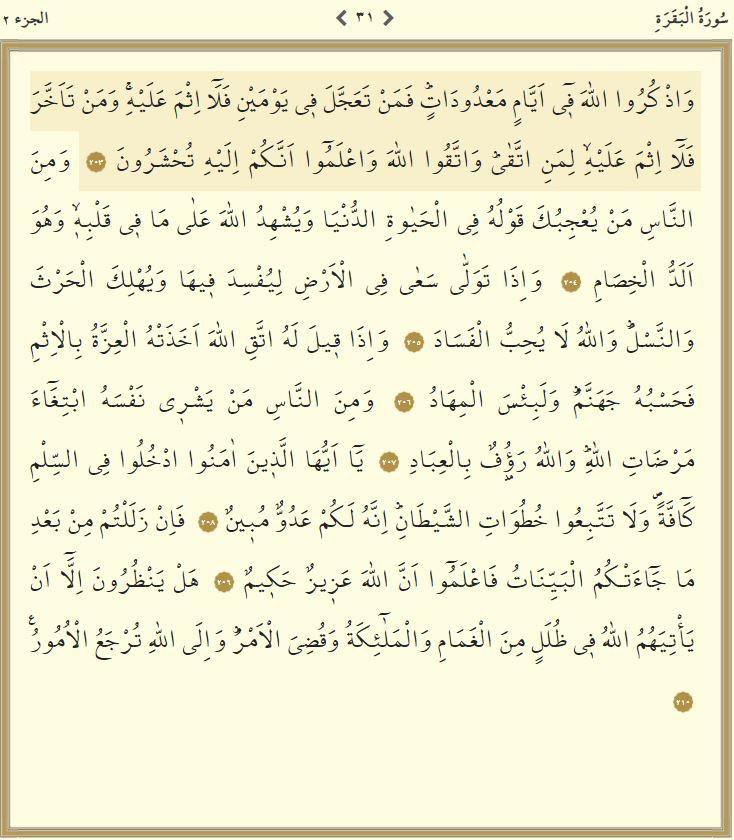 سُورَةُ الْبَقَرَةِ ٣١ الجزء ٢
وَاذْكُرُوا اللّٰهَ ف۪ٓي اَيَّامٍ مَعْدُودَاتٍۜ فَمَنْ تَعَجَّلَ ف۪ي يَوْمَيْنِ فَلَٓا اِثْمَ عَلَيْهِۚ وَمَنْ تَاَخَّرَ
فَلَٓا اِثْمَ عَلَيْهِۙ لِمَنِ اتَّقٰىۜ وَاتَّقُوا اللّٰهَ وَاعْلَمُٓوا اَنَّكُمْ اِلَيْهِ تُحْشَرُونَ ٢٠٣ وَمِنَ
النَّاسِ مَنْ يُعْجِبُكَ قَوْلُهُ فِي الْحَيٰوةِ الدُّنْيَا وَيُشْهِدُ اللّٰهَ عَلٰى مَا ف۪ي قَلْبِه۪ۙ وَهُوَ
اَلَدُّ الْخِصَامِ ٢٠٤ وَاِذَا تَوَلّٰى سَعٰى فِي الْاَرْضِ لِيُفْسِدَ ف۪يهَا وَيُهْلِكَ الْحَرْثَ
وَالنَّسْلَۜ وَاللّٰهُ لَا يُحِبُّ الْفَسَادَ ٢٠٥ وَاِذَا ق۪يلَ لَهُ اتَّقِ اللّٰهَ اَخَذَتْهُ الْعِزَّةُ بِالْاِثْمِ
فَحَسْبُهُ جَهَنَّمُۜ وَلَبِئْسَ الْمِهَادُ ٢٠٦ وَمِنَ النَّاسِ مَنْ يَشْر۪ي نَفْسَهُ ابْتِغَٓاءَ
مَرْضَاتِ اللّٰهِۜ وَاللّٰهُ رَؤُ۫فٌ بِالْعِبَادِ ٢٠٧ يَٓا اَيُّهَا الَّذ۪ينَ اٰمَنُوا ادْخُلُوا فِي السِّلْمِ
كَٓافَّةًۖ وَلَا تَتَّبِعُوا خُطُوَاتِ الشَّيْطَانِۜ اِنَّهُ لَكُمْ عَدُوٌّ مُب۪ينٌ ٢٠٨ فَاِنْ زَلَلْتُمْ مِنْ بَعْدِ
مَا جَٓاءَتْكُمُ الْبَيِّنَاتُ فَاعْلَمُٓوا اَنَّ اللّٰهَ عَز۪يزٌ حَك۪يمٌ ٢٠٩ هَلْ يَنْظُرُونَ اِلَّٓا اَنْ
يَأْتِيَهُمُ اللّٰهُ ف۪ي ظُلَلٍ مِنَ الْغَمَامِ وَالْمَلٰٓئِكَةُ وَقُضِيَ الْاَمْرُۜ وَاِلَى اللّٰهِ تُرْجَعُ الْاُمُورُ۟
٢١٠